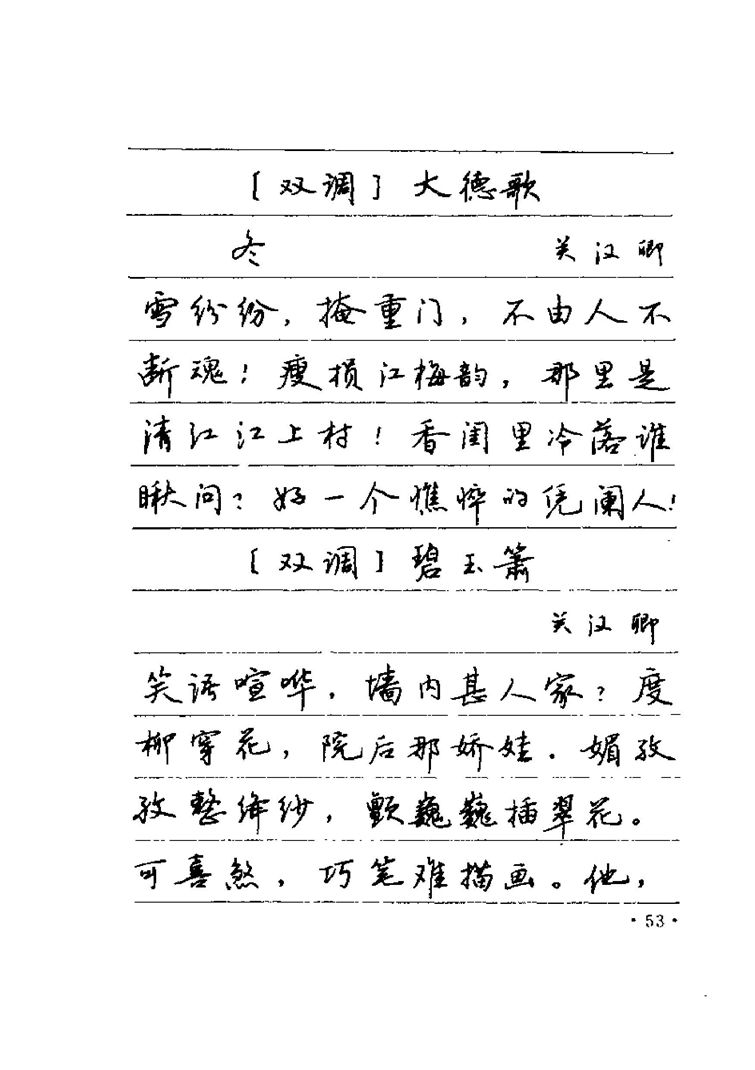 [双调]大德歌
冬 关汉卿
雪纷纷，掩重门，不由人不
断魂！瘦损江梅韵，那里是
清江江上村！香闺里冷落谁
瞅问？好一个憔悴的凭阑人！
[双调]碧玉箫
关汉卿
笑语喧哗，墙内甚人家？度
柳穿花，院后那娇娃．媚孜
孜整绛纱，颤巍巍插翠花。
可喜煞，巧笔难描画。他，
·53·